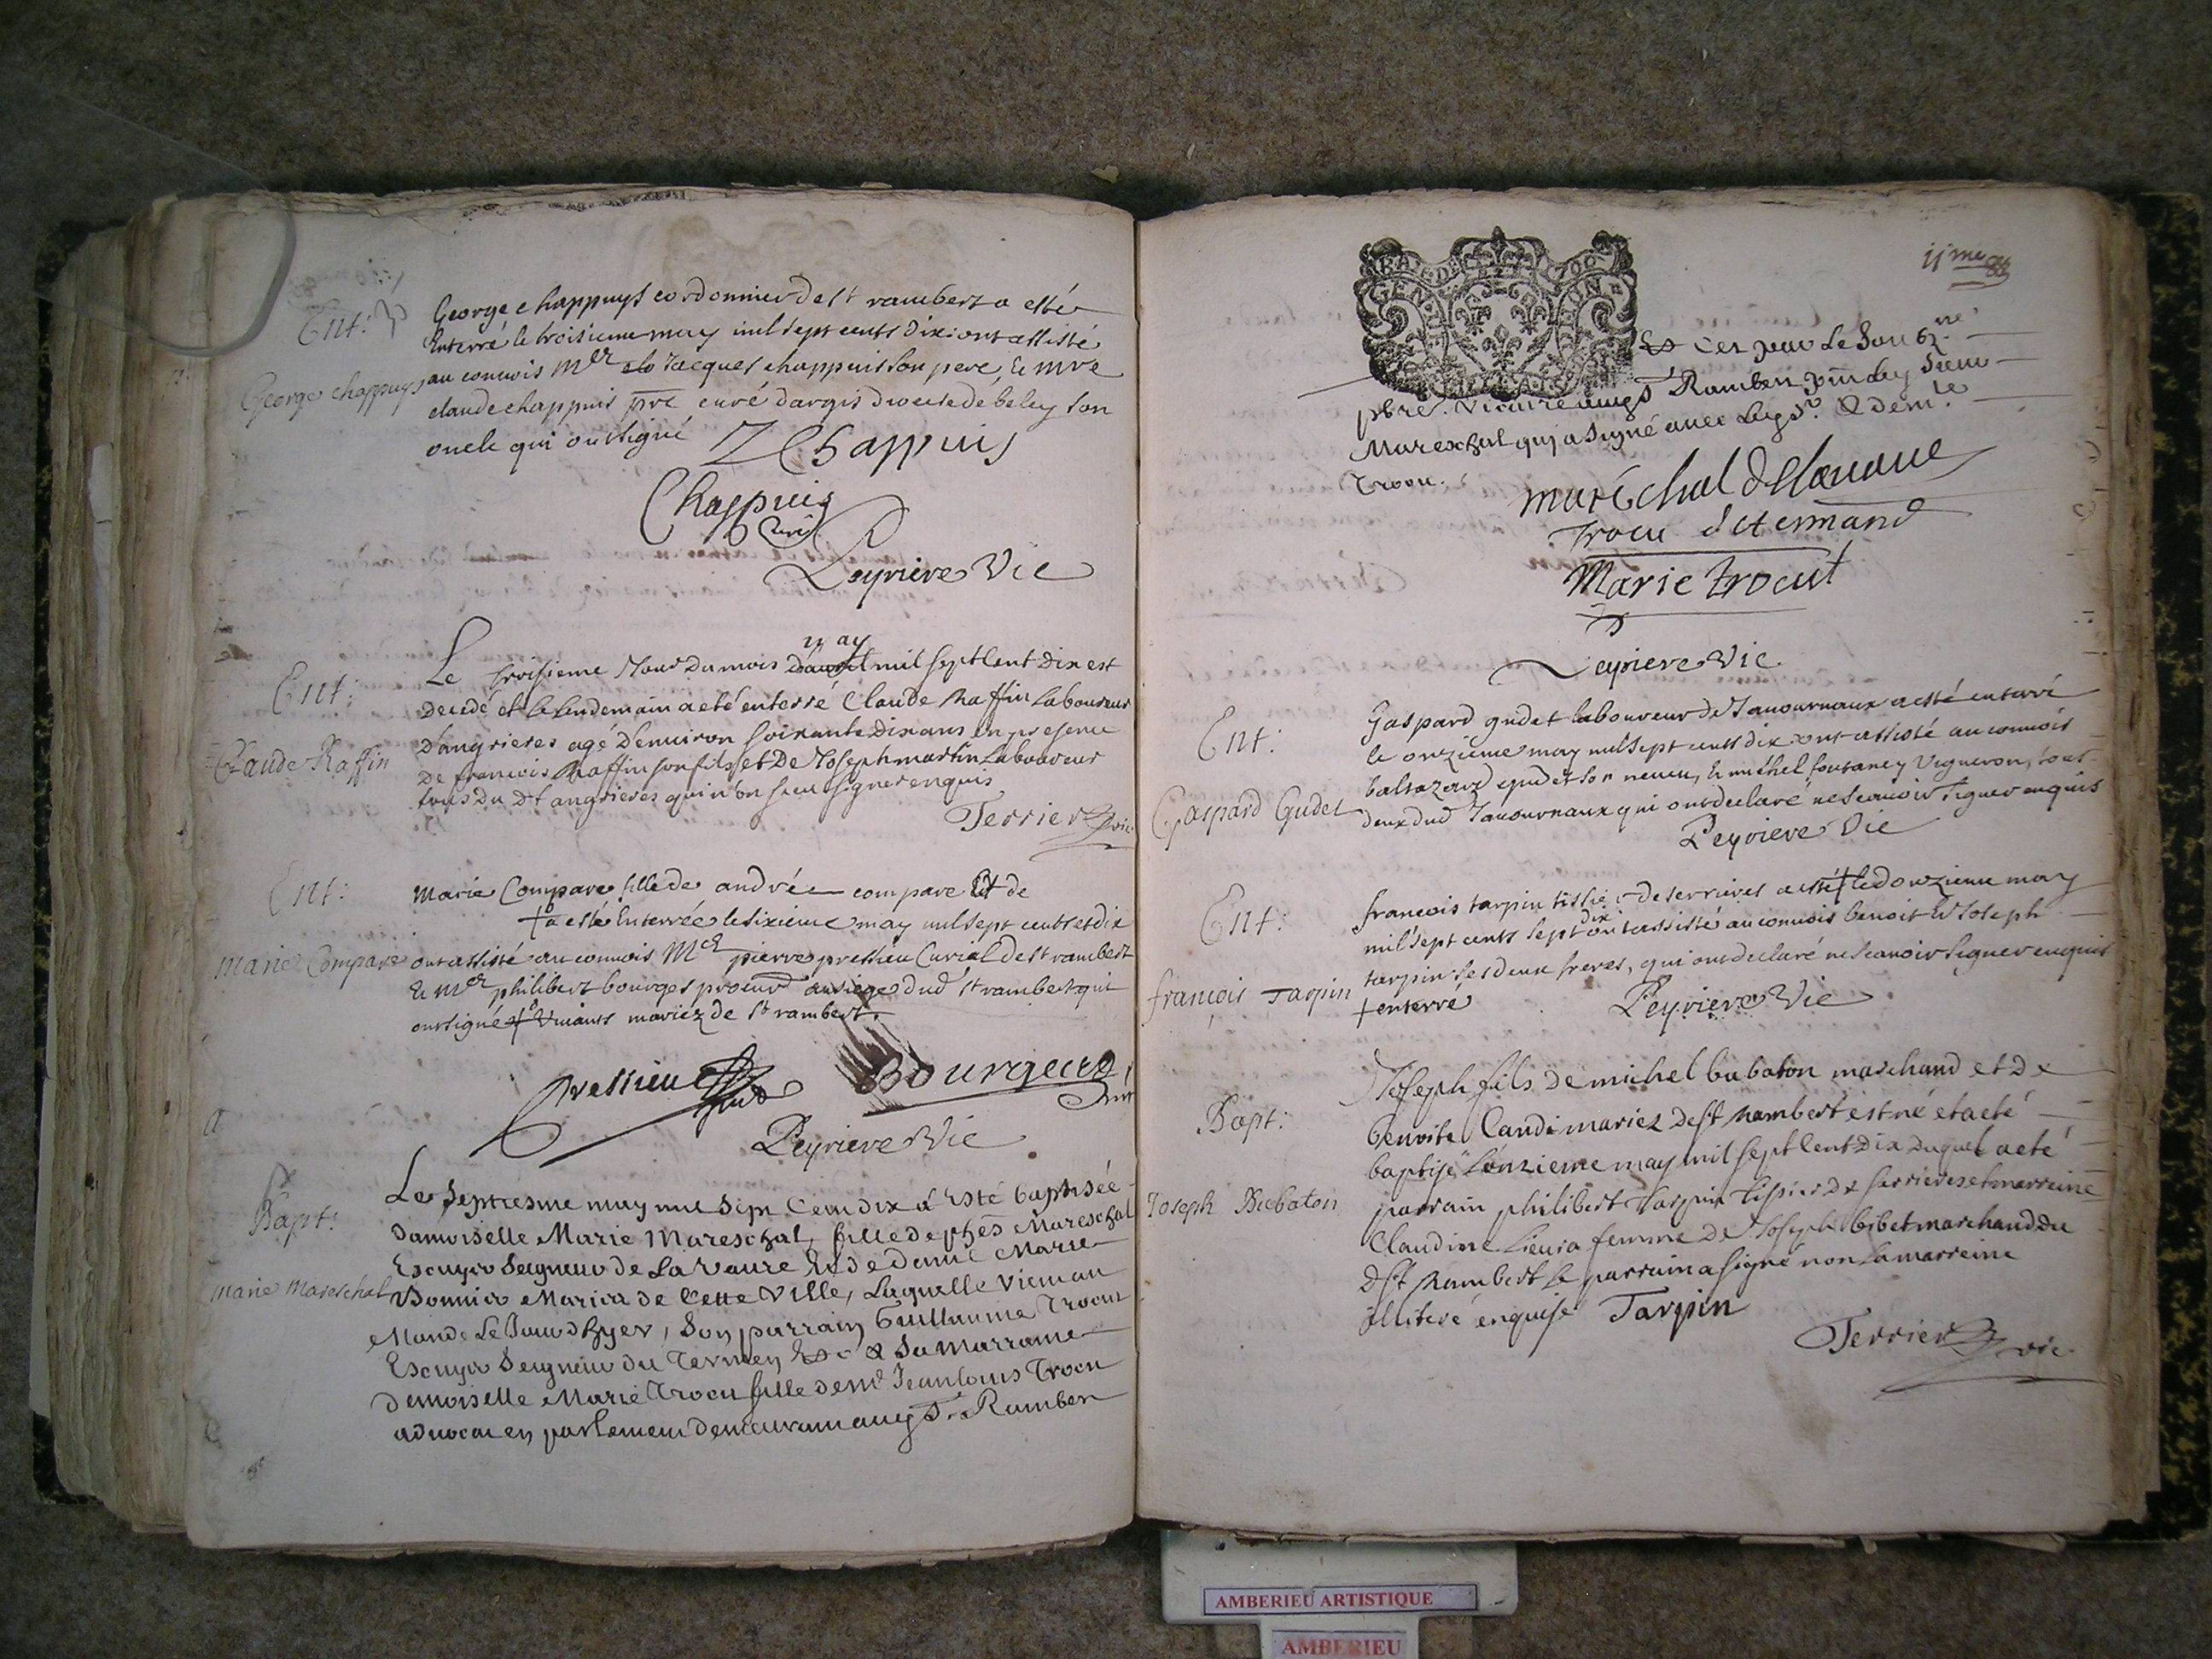 Ent:
George chappuys
George chappuys cordonnier de st rambert a esté
Enterré le troisieme may mil sept cents dix ont assisté
au convois Mer Jacques chappuis son pere, & mre
claude chappuis pre curé dargis diocese de beley son
oncle qui ont signé
Chappuis
Chappuis
Curé
Peyriere Vic
Ent:
Claude Raffin
may
Le troisieme Jour du mois mil sept Cent Dix est
Decedé et le lendemain a eté enterré Claude Raffin Laboureur
D'angrieres agé D'environ soixante Dix ans en presence
De francois Raffin son fils et De Joseph martin Laboureur
tous du Dt angrieres qui n'on sceu signer enquis
Terrier vic
Ent:
Marie Compare
Marie Compare fille de andré compare Et de
+ a esté Enterrée le sixieme may mil sept cents et dix
ont assisté au convois Mer pierre pressieu Curial de st rambert
& Mer philibert bourges procur au siege dud st rambert qui
ont signé + vivants mariez de st rambert.
Pressieu
Bourgeois
Peyriere Vic
a
Bapt:
Marie Mareschal
Le Septiesme may mil Sept Cent dix a Esté baptisée
damoiselle Marie Mareschal, fille de Mareschal
Escuyer Seigneur de La Vaure & de dame Marie
Bonnier Mariez de Cette Ville, Laquelle Vient au
Monde Le Jour d'hyer, Son parrain Guillaume Trocut
Escuyer Seigneur du Termen & Sa Marraine
Demoiselle Marie Trocu fille de Mr Jean Louis Trocu
advocat en parlement demeurant aud St Rambert
GEN
11me
Et Ces par Le Soubz.né
pbre. Vicaire aud St Rambert Sieur
Mareschal qui a Signé avec Led Sr. & demlle
Trocu.
maréchal delavaure
trocu determand
Marie trocut
Peyriere Vic
Ent:
Gaspard Gudet
Gaspard gudet laboureur de Javournaux a esté enterré
le onzieme may mil sept cents dix ont assisté au convois
baltazard gudet son neveu, & michel fontaney Vigneron, tout
deux dud Javournaux qui ont declaré ne scavoir signer enquis
Peyriere Vic
Ent:
françois Tarpin
francois tarpin tissier de serrieres a esté + le douzieme may
dix
mil sept cents sept ont assisté au convois benoit & Joseph
tarpin ses deux freres, qui ont declaré ne scavoir signer enquis
+ enterré
Peyriere Vic
Bapt:
Joseph Babaton
Joseph fils de michel babaton marchand et de
benoite Candi mariez de st Rambert est né et a eté
baptisé L'onzieme may mil sept Cent Dix duquel a eté
parrain philibert Tarpin tissier de serrieres et marreine
Claudine Lieura femme de Joseph bibet marchand du
dst Rambert le parrain a signé non la marreine
illiteré enquise Tarpin
Terrier vic.
AMBERIEU ARTISTIQUE
AMBERIEU